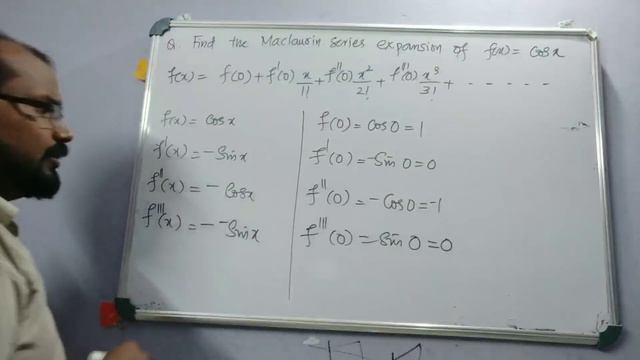 Q. Find the Maclaurin series expansion of f(x) = Cosx
f(x) = f(0) + f'(0) x/1! + f''(0) x²/2! + f'''(0) x³/3! + - - - - - -
f(x) = Cosx
f'(x) = -Sinx
f''(x) = - Cosx
f'''(x) = - -Sinx
f(0) = Cos0 = 1
f'(0) = -Sin 0 = 0
f''(0) = -Cos0 = -1
f'''(0) = Sin 0 = 0